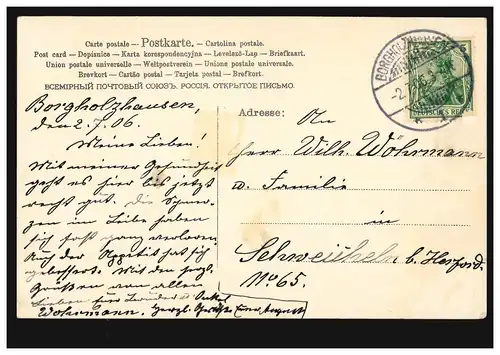 Carte postale – Postkarte. – Cartolina postale.
Post card – Dopisnice – Karta korespondencyjna – Levelező-Lap – Briefkaart.
Union postale universelle – Weltpostverein – Unione postale universale.
Brevkort – Cartão postal – Tarjeta postal – Brefkort.
ВСЕМІРНЫЙ ПОЧТОВЫЙ СОЮЗЪ. РОССІЯ. ОТКРЫТОЕ ПИСЬМО.
BORGHOLZHAUSEN
DEUTSCHES REICH
Borgholzhausen,
den 2.7.06.
Meine Lieben!
Mit meiner Gesundheit
geht es hier bis jetzt
recht gut. Die Schmer-
zen im Leibe haben
sich fast ganz verloren
Auch der Appetit hat sich
gebessert. Mit den herzl.
Grüßen von allen
Lieben hier Onkel
Wöhrmann. Herzl. Grüße Euer August
Adresse:
An
Herrn Wilh. Wöhrmann
u. Familie
in
Schweicheln b. Herford.
No 65.